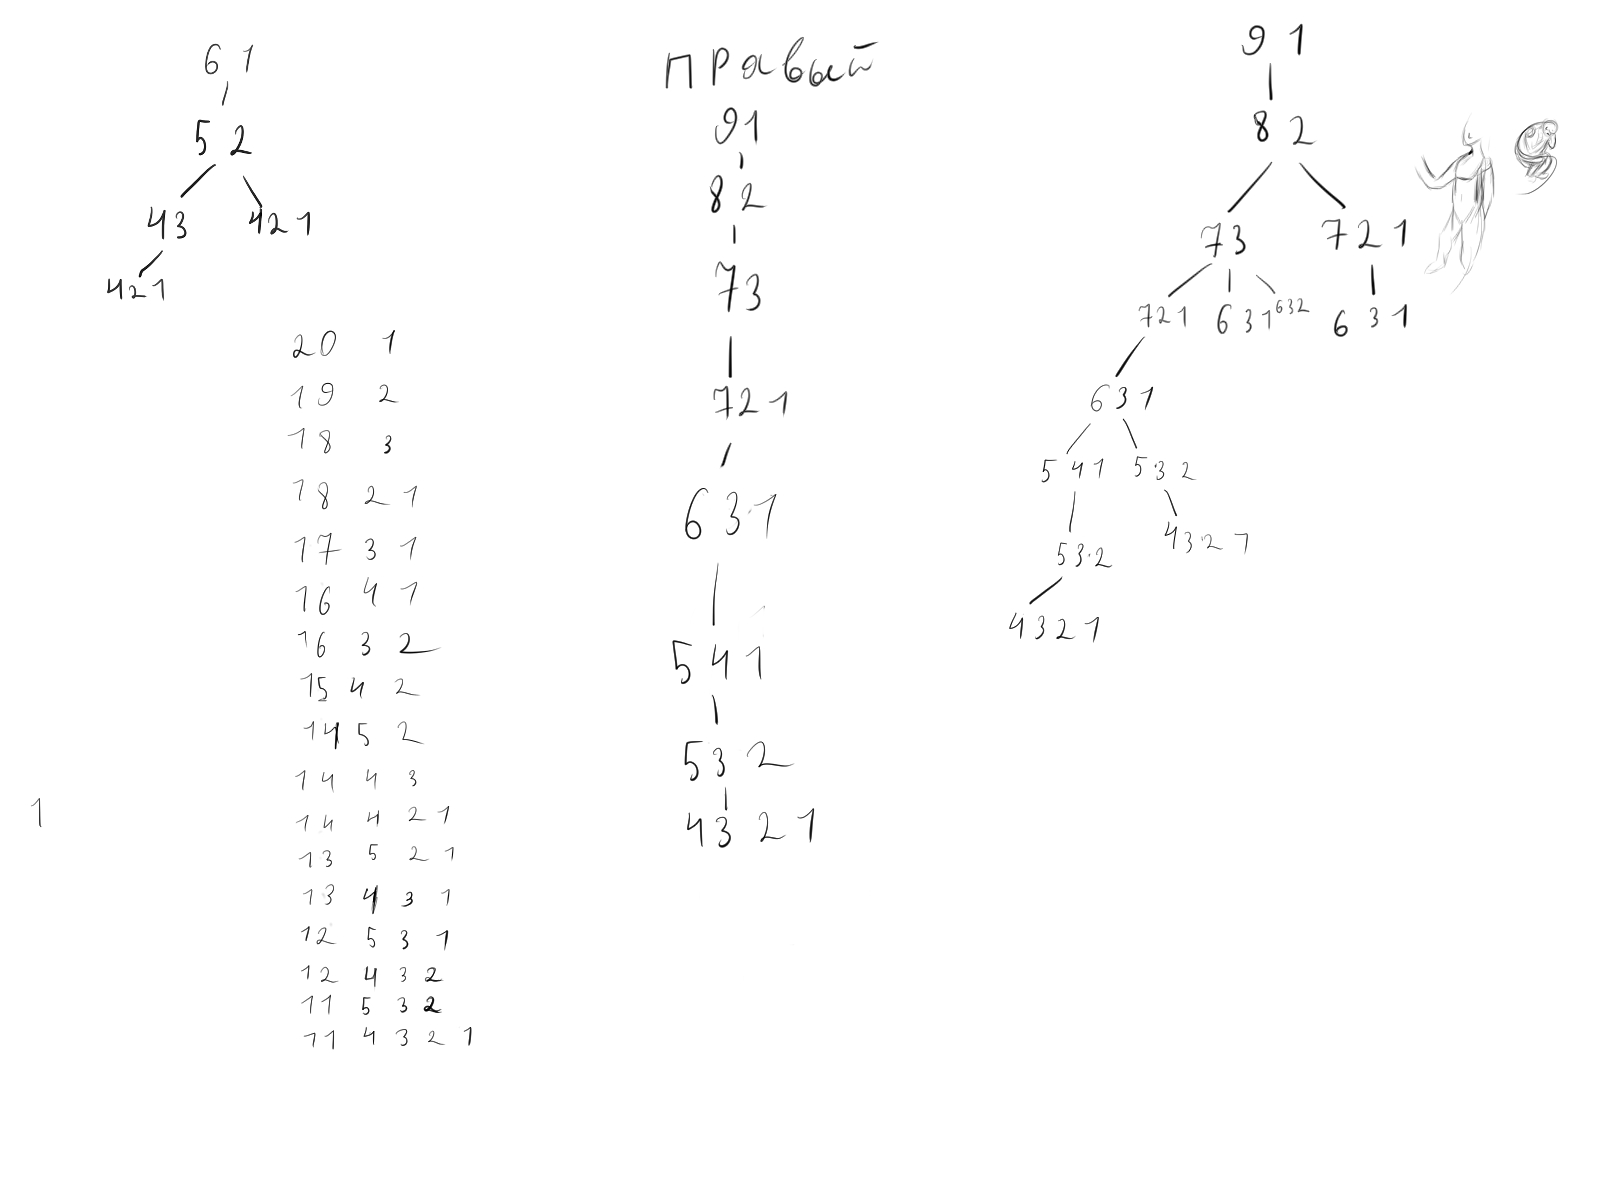 6 1
5 2
43 421
421
20 1
19 2
18 3
18 2 1
17 3 1
16 4 1
16 3 2
15 4 2
14 5 2
14 4 3
14 4 2 1
13 5 2 1
13 4 3 1
12 5 3 1
12 4 3 2
11 5 3 2
11 4 3 2 1
1
правый
91
82
73
721
631
541
532
4321
91
82
73 721
721 631 632 631
631
541 532
532 4321
4321